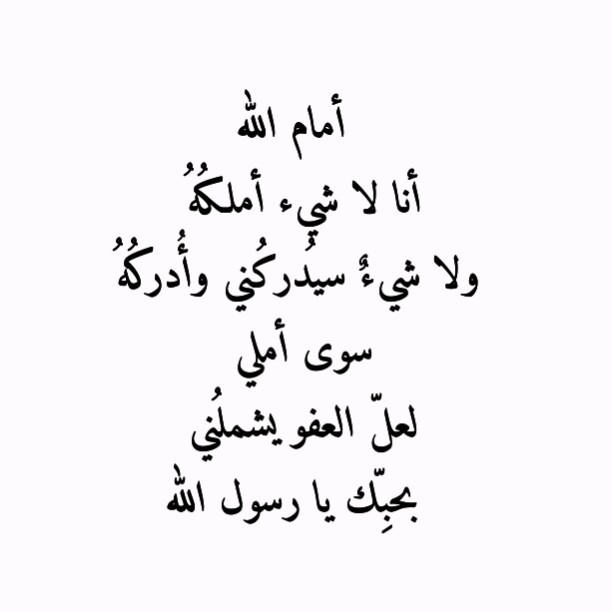 أمام الله
أنا لا شيء أملكُهُ
ولا شيءٌ سيُدركُني وأُدركُهُ
سوى أملي
لعلّ العفو يشملُني
بحبِّك يا رسول الله